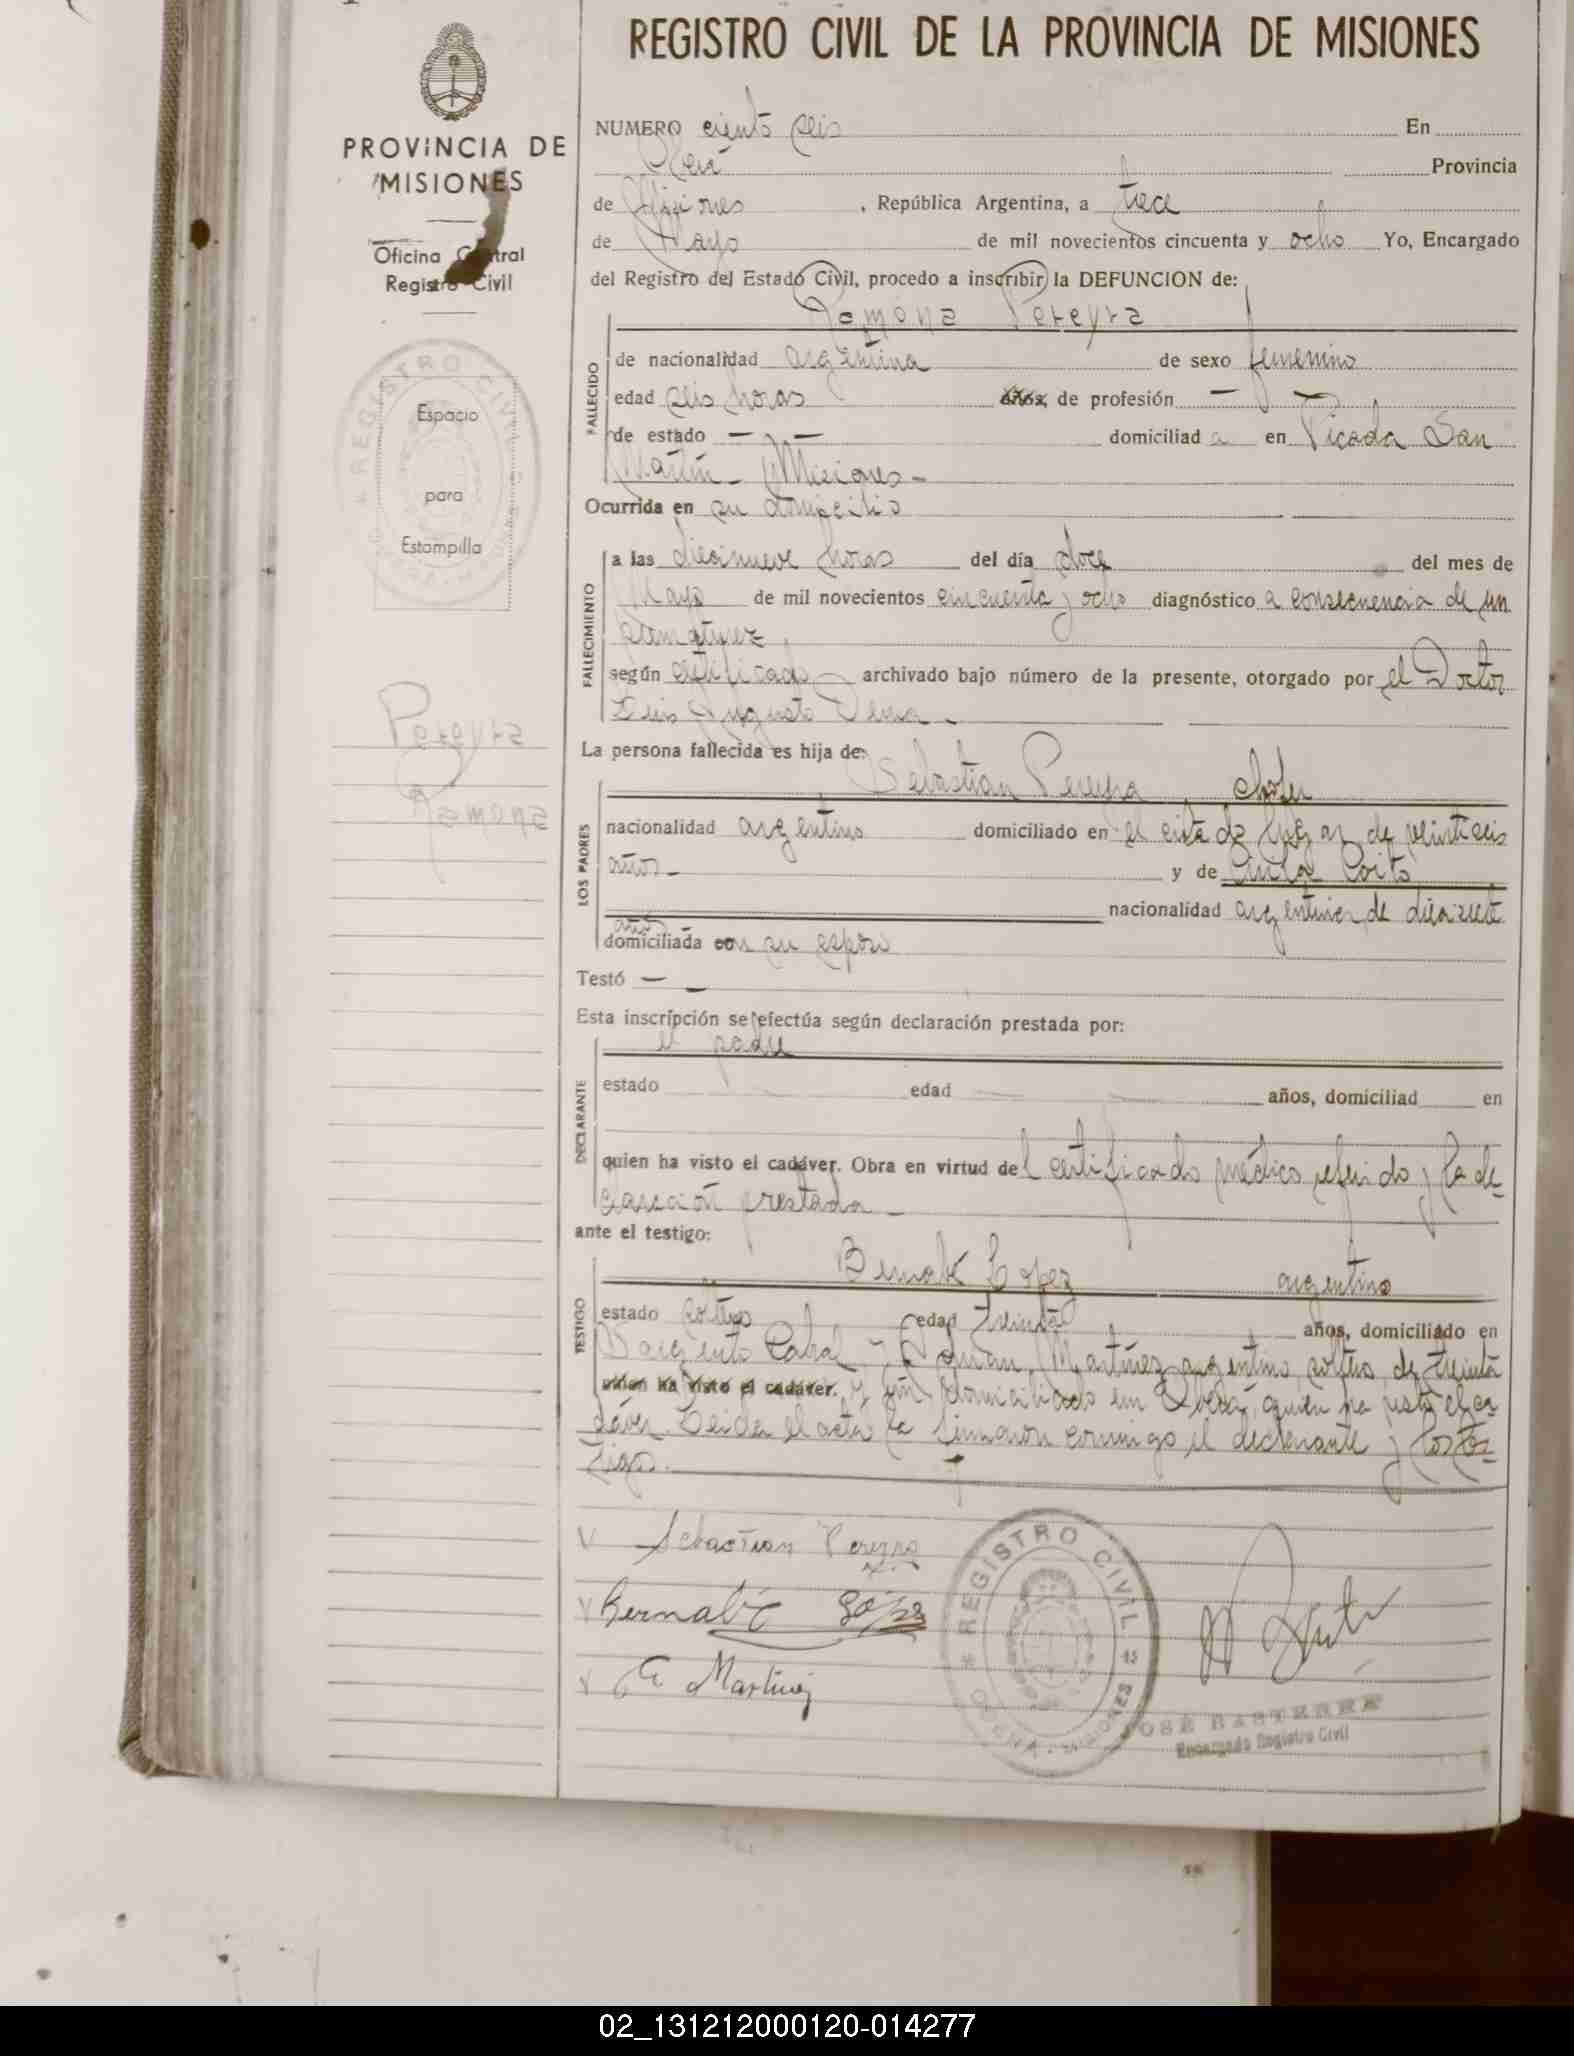 REGISTRO CIVIL DE LA PROVINCIA DE MISIONES
PROVINCIA DE
MISIONES
Oficina Central
Registro Civil
Espacio
para
Estampilla
Pereyra
Ramona
NUMERO ciento seis En
Oberá Provincia
de Misiones, República Argentina, a trece
de Mayo de mil novecientos cincuenta y ocho Yo, Encargado
del Registro del Estado Civil, procedo a inscribir la DEFUNCION de:
Ramona Pereyra
FALLECIDO
de nacionalidad argentina de sexo femenino
edad seis horas años, de profesión —
de estado — — domiciliada en Picada San
Martín - Misiones -
Ocurrida en su domicilio
FALLECIMIENTO
a las diecinueve horas del día doce del mes de
Mayo de mil novecientos cincuenta y ocho diagnóstico a consecuencia de un
según certificado archivado bajo número de la presente, otorgado por el Doctor
Luis Augusto
La persona fallecida es hija de:
Sebastian Pereyra chofer
LOS PADRES
nacionalidad argentino domiciliado en el citado lugar de veintiseis
años - y de
nacionalidad argentina de diecisiete
años
domiciliada con su esposo
Testó —
Esta inscripción se efectúa según declaración prestada por:
el padre
DECLARANTE
estado edad años, domiciliad en
quien ha visto el cadáver. Obra en virtud del certificado médico referido y la de-
claración prestada -
ante el testigo:
Bernabé Lopez argentino
TESTIGO
estado soltero edad treinta años, domiciliado en
Sargento Cabral y Martinez argentino soltero de treinta
quien ha visto el cadáver. y un domiciliado en Oberá, quien ha visto el ca-
dáver. Leida el acta la firmaron conmigo el declarante y los tes-
tigos.
Sebastian Pereyra
Bernabé López
Martinez
REGISTRO CIVIL
MISIONES
JOSÉ BASTERRE
Encargado Registro Civil
02_131212000120-014277